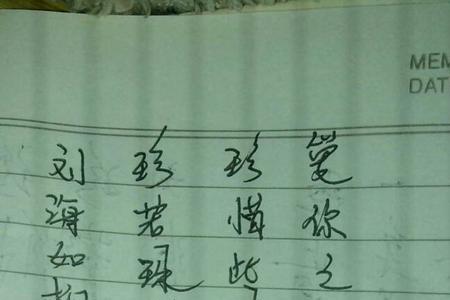 MEM
DAT
刘 珍 珍
海 若 惜 你
如 珠 此 之